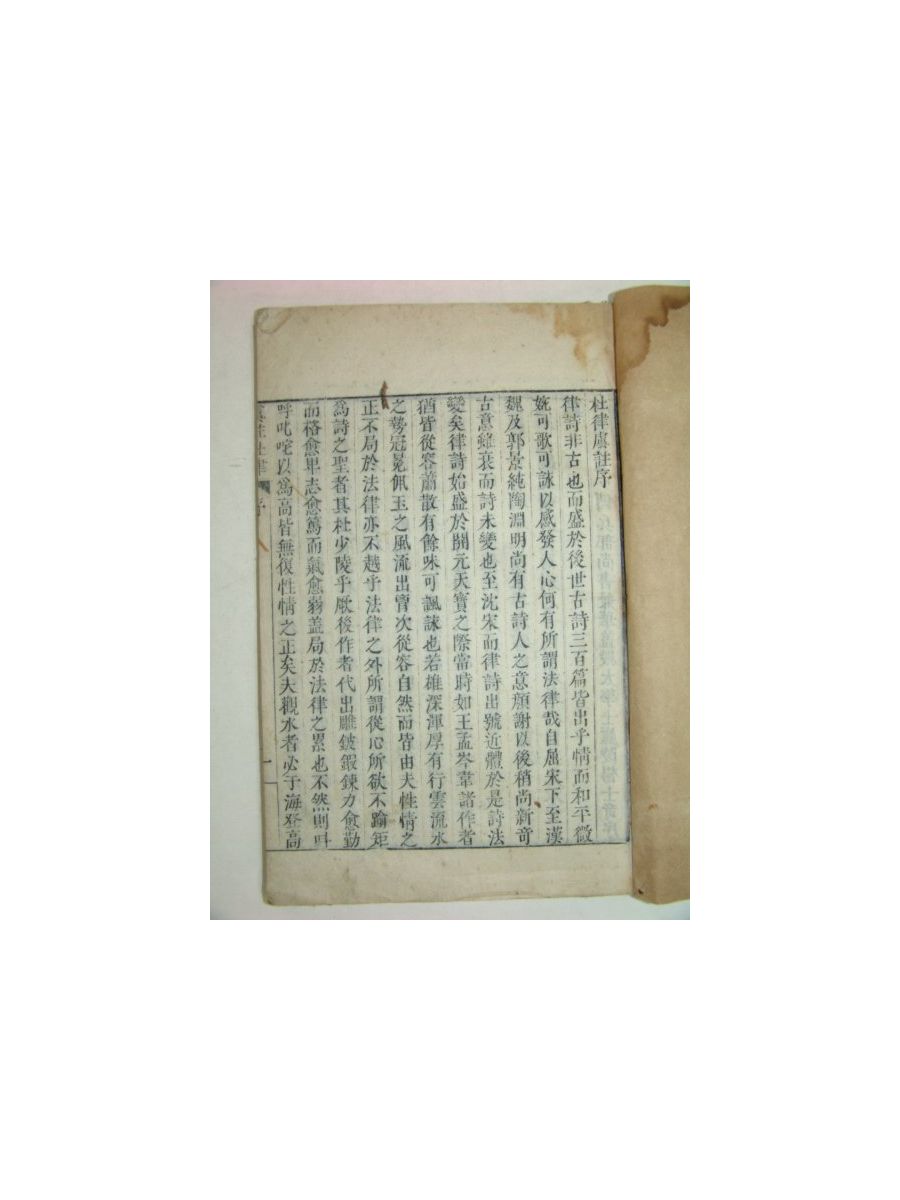 杜律虞註序
律詩非古也而盛於後世古詩三百篇皆出乎情而和平微
婉可歌可詠以感發人心何有所謂法律哉自屈宋下至漢
魏及郭景純陶淵明尚有古詩人之意顏謝以後稍尚新奇
古意雖衰而詩未變也至沈宋而律詩出號近體於是詩法
變矣律詩始盛於開元天寶之際當時如王孟岑韋諸作者
猶皆從容蕭散有餘味可諷詠也若雄深渾厚有行雲流水
之勢冠冕佩玉之風流出胷次從容自然而皆由夫性情之
正不局於法律亦不越乎法律之外所謂從心所欲不踰矩
為詩之聖者其杜少陵乎厥後作者代出雕鎪鍜鍊力愈勤
而格愈卑志愈篤而氣愈弱盖局於法律之累也不然則叫
呼叱咤以為高皆無復性情之正矣夫觀水者必于海登高
虞註杜律 序 一